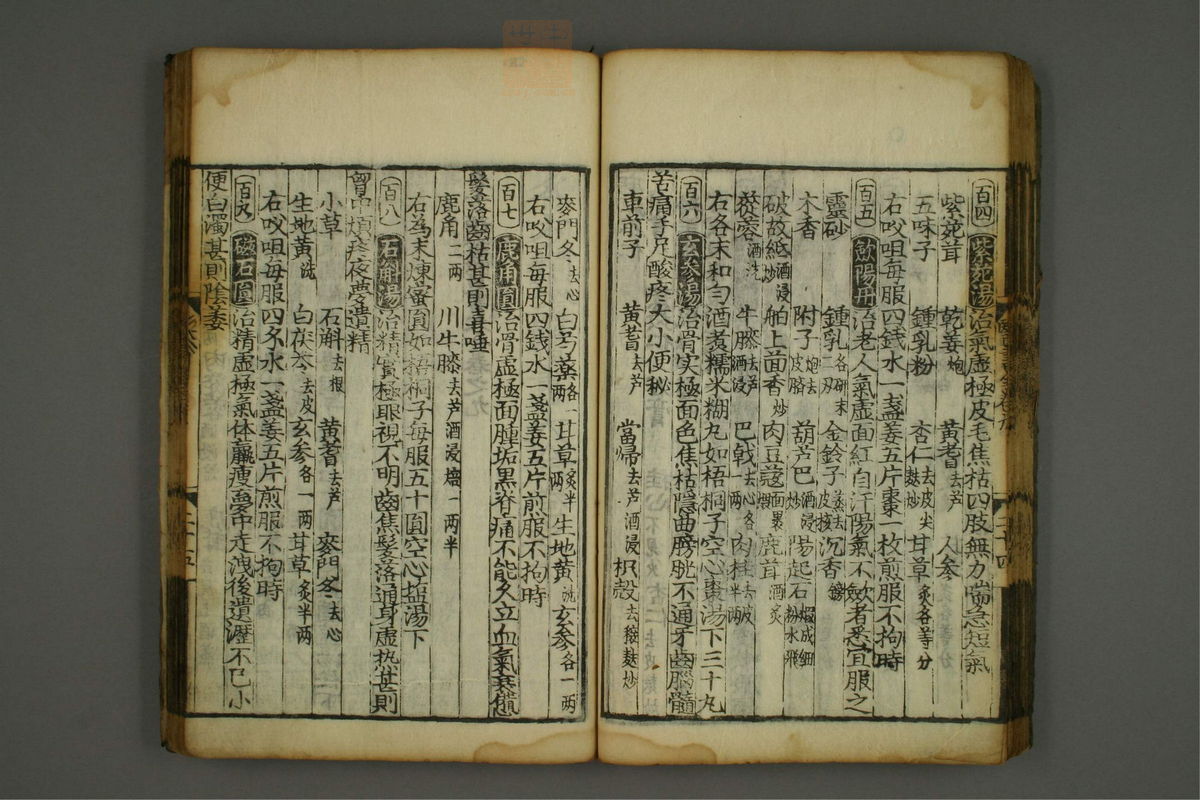 百四 紫菀湯 治氣虛極皮毛焦枯四肢無力喘急短氣
紫菀茸 乾姜炮 黃耆去芦 人參
五味子 鍾乳粉 杏仁去皮尖麩炒 甘草炙各等分
右㕮咀每服四錢水一盞姜五片棗一枚煎服不拘時
百五 歛陽丹 治老人氣虛面紅自汗陽氣不歛者悉宜服之
靈砂 鍾乳各研末二兩 金鈴子蒸去皮核 沉香鎊
木香 附子炮去皮臍 葫芦巴酒浸炒 陽起石煅成細粉水飛
破故紙酒浸炒 舶上茴香炒 肉豆蔻面裹煨 鹿茸酒炙
蓯蓉酒洗 牛膝去芦酒浸 巴戟去心各一兩 肉桂去皮半兩
右各末和勻酒煮糯米糊丸如梧桐子空心棗湯下三十丸
百六 玄參湯 治骨实極面色焦枯隱曲膀胱不通牙齒腦髓
苦痛手足酸疼大小便秘
車前子 黃耆去芦 當歸去芦酒浸 枳殼去穰麩炒
麥門冬去心 白芍藥各一兩 甘草炙半兩 生地黃洗 玄參各一兩
右㕮咀每服四錢水一盞姜五片煎服不拘時
百七 鹿角圓 治骨虛極面腫垢黑脊痛不能久立血氣衰憊
髮落齒枯甚則喜唾
鹿角二兩 川牛膝去芦酒浸焙一兩半
右為末煉蜜圓如梧桐子每服五十圓空心盐湯下
百八 石斛湯 治精實極眼視不明齒焦髮落通身虛热甚則
胷中煩疼夜夢遺精
小草 石斛去根 黃耆去芦 麥門冬去心
生地黃洗 白茯苓去皮 玄參各一兩 甘草炙半兩
右㕮咀每服四錢水一盞姜五片煎服不拘時
百九 磁石圓 治精虛極氣体羸瘦夢中走洩後遺瀝不已小
便白濁甚則陰萎